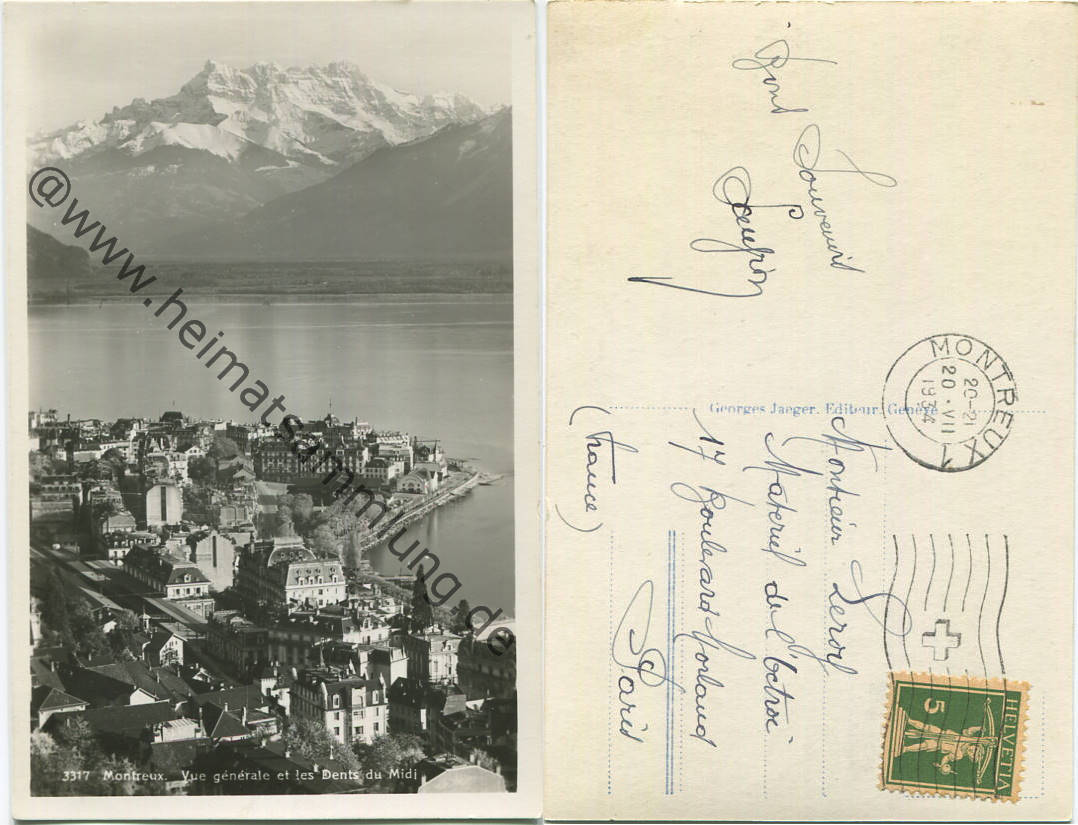 3317 Montreux. Vue générale et les Dents du Midi
@www.heimatsammlung.de
Bons Souvenirs
Georges Jaeger. Editeur. Genève
MONTREUX
20-21
20·VII
1934
HELVETIA
5
Monsieur Leroy
Matériel de l'octroi
17 Boulevard Morland
Paris
(France)